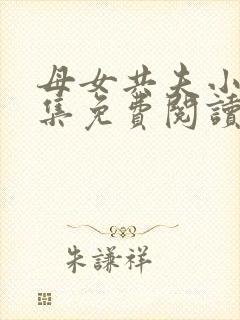 母女共夫小
集免費閱讀
朱謙祥